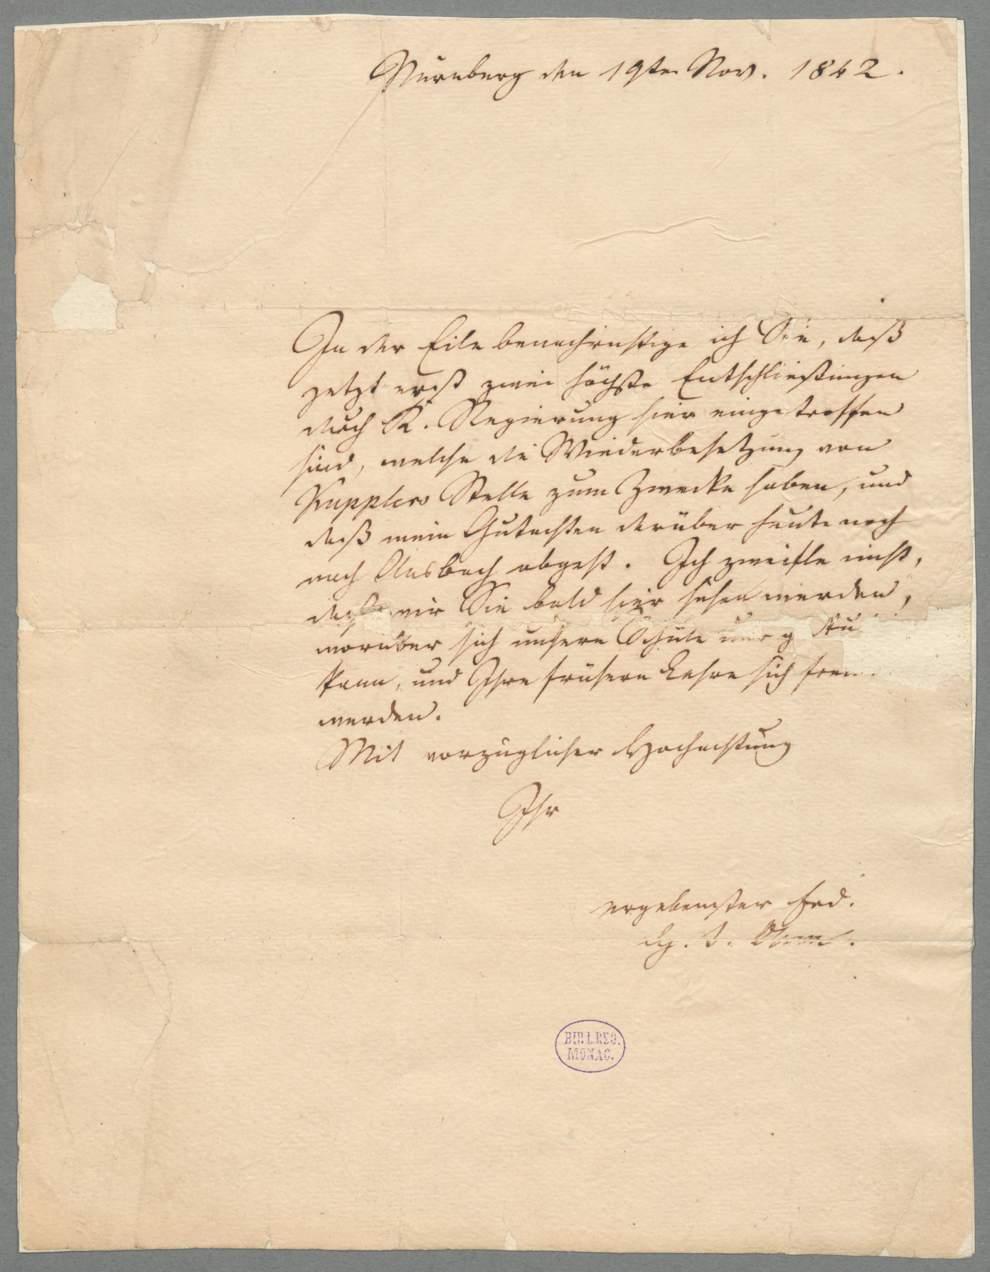 Nürnberg den 19ten Nov. 1842.
In der Eile benachrichtige ich Sie, daß
jetzt erst zwei höchste Entschließungen
durch K. Regierung hier eingetroffen
sind, welche die Wiederbesetzung von
Kupplers Stelle zum Zwecke haben, und
daß mein Gutachten darüber heute noch
nach Ansbach abgeht. Ich zweifle nicht,
daß wir Sie bald hier sehen werden,
worüber sich unsere Schule nur
kann, und Ihre frühern Lehrer sich freuen
werden.
Mit vorzüglicher Hochachtung
Ihr
ergebenster Frd.
Ohm.
BIBL.REG.
MONAC.